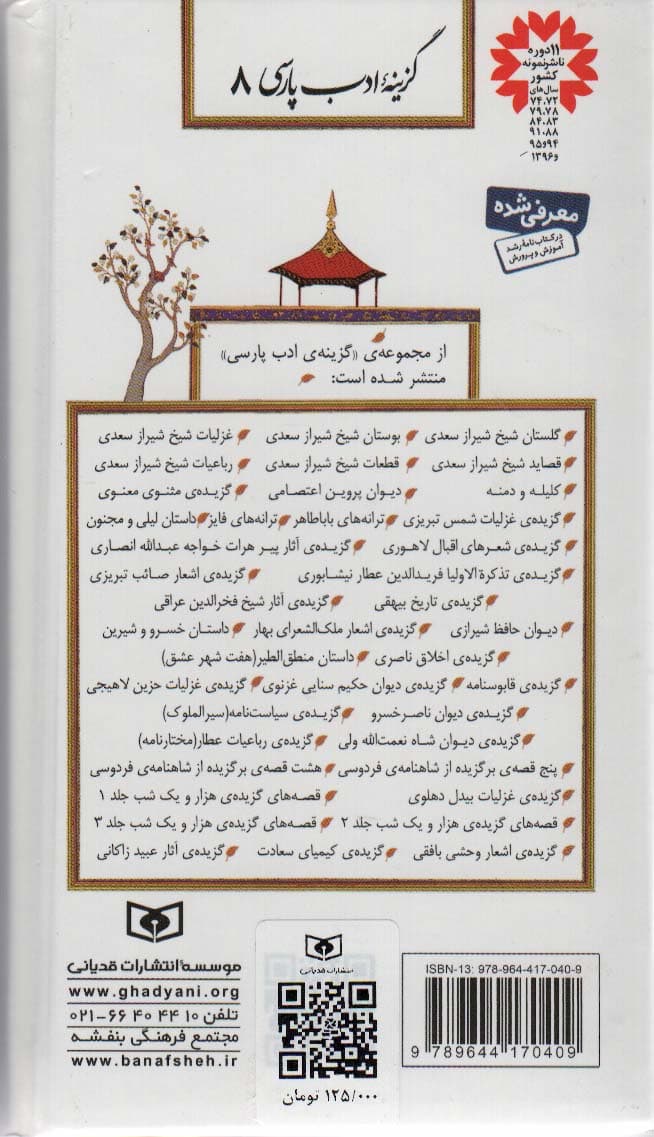 گزینهٔ ادب پارسی ۸
۱۱ دوره
ناشر نمونه
کشور
سال‌های
۷۴،۷۲
۷۹،۷۸
۸۴،۸۳
۹۱،۸۸
۹۴و۹۵
و۱۳۹۶
معرفی شده
در کتاب‌نامهٔ رشد
آموزش و پرورش
از مجموعه‌ی «گزینه‌ی ادب پارسی»
منتشر شده است:
گلستان شیخ شیراز سعدی بوستان شیخ شیراز سعدی غزلیات شیخ شیراز سعدی
قصاید شیخ شیراز سعدی قطعات شیخ شیراز سعدی رباعیات شیخ شیراز سعدی
کلیله و دمنه دیوان پروین اعتصامی گزیده‌ی مثنوی معنوی
گزیده‌ی غزلیات شمس تبریزی ترانه‌های باباطاهر ترانه‌های فایز داستان لیلی و مجنون
گزیده‌ی شعرهای اقبال لاهوری گزیده‌ی آثار پیر هرات خواجه عبدالله انصاری
گزیده‌ی تذکرة الاولیا فریدالدین عطار نیشابوری گزیده‌ی اشعار صائب تبریزی
گزیده‌ی تاریخ بیهقی گزیده‌ی آثار شیخ فخرالدین عراقی
دیوان حافظ شیرازی گزیده‌ی اشعار ملک‌الشعرای بهار داستان خسرو و شیرین
گزیده‌ی اخلاق ناصری داستان منطق‌الطیر(هفت شهر عشق)
گزیده‌ی قابوسنامه گزیده‌ی دیوان حکیم سنایی غزنوی گزیده‌ی غزلیات حزین لاهیجی
گزیده‌ی دیوان ناصرخسرو گزیده‌ی سیاست‌نامه(سیرالملوک)
گزیده‌ی دیوان شاه نعمت‌الله ولی گزیده‌ی رباعیات عطار(مختارنامه)
پنج قصه‌ی برگزیده از شاهنامه‌ی فردوسی هشت قصه‌ی برگزیده از شاهنامه‌ی فردوسی
گزیده‌ی غزلیات بیدل دهلوی قصه‌های گزیده‌ی هزار و یک شب جلد ۱
قصه‌های گزیده‌ی هزار و یک شب جلد ۲ قصه‌های گزیده‌ی هزار و یک شب جلد ۳
گزیده‌ی اشعار وحشی بافقی گزیده‌ی کیمیای سعادت گزیده‌ی آثار عبید زاکانی
موسسهٔ انتشارات قدیانی
www.ghadyani.org
تلفن ۱۰ ۴۴ ۴۰ ۶۶-۰۲۱
مجتمع فرهنگی بنفشه
www.banafsheh.ir
انتشارات قدیانی
۱۲۵/۰۰۰ تومان
ISBN-13: 978-964-417-040-9
9 789644 170409